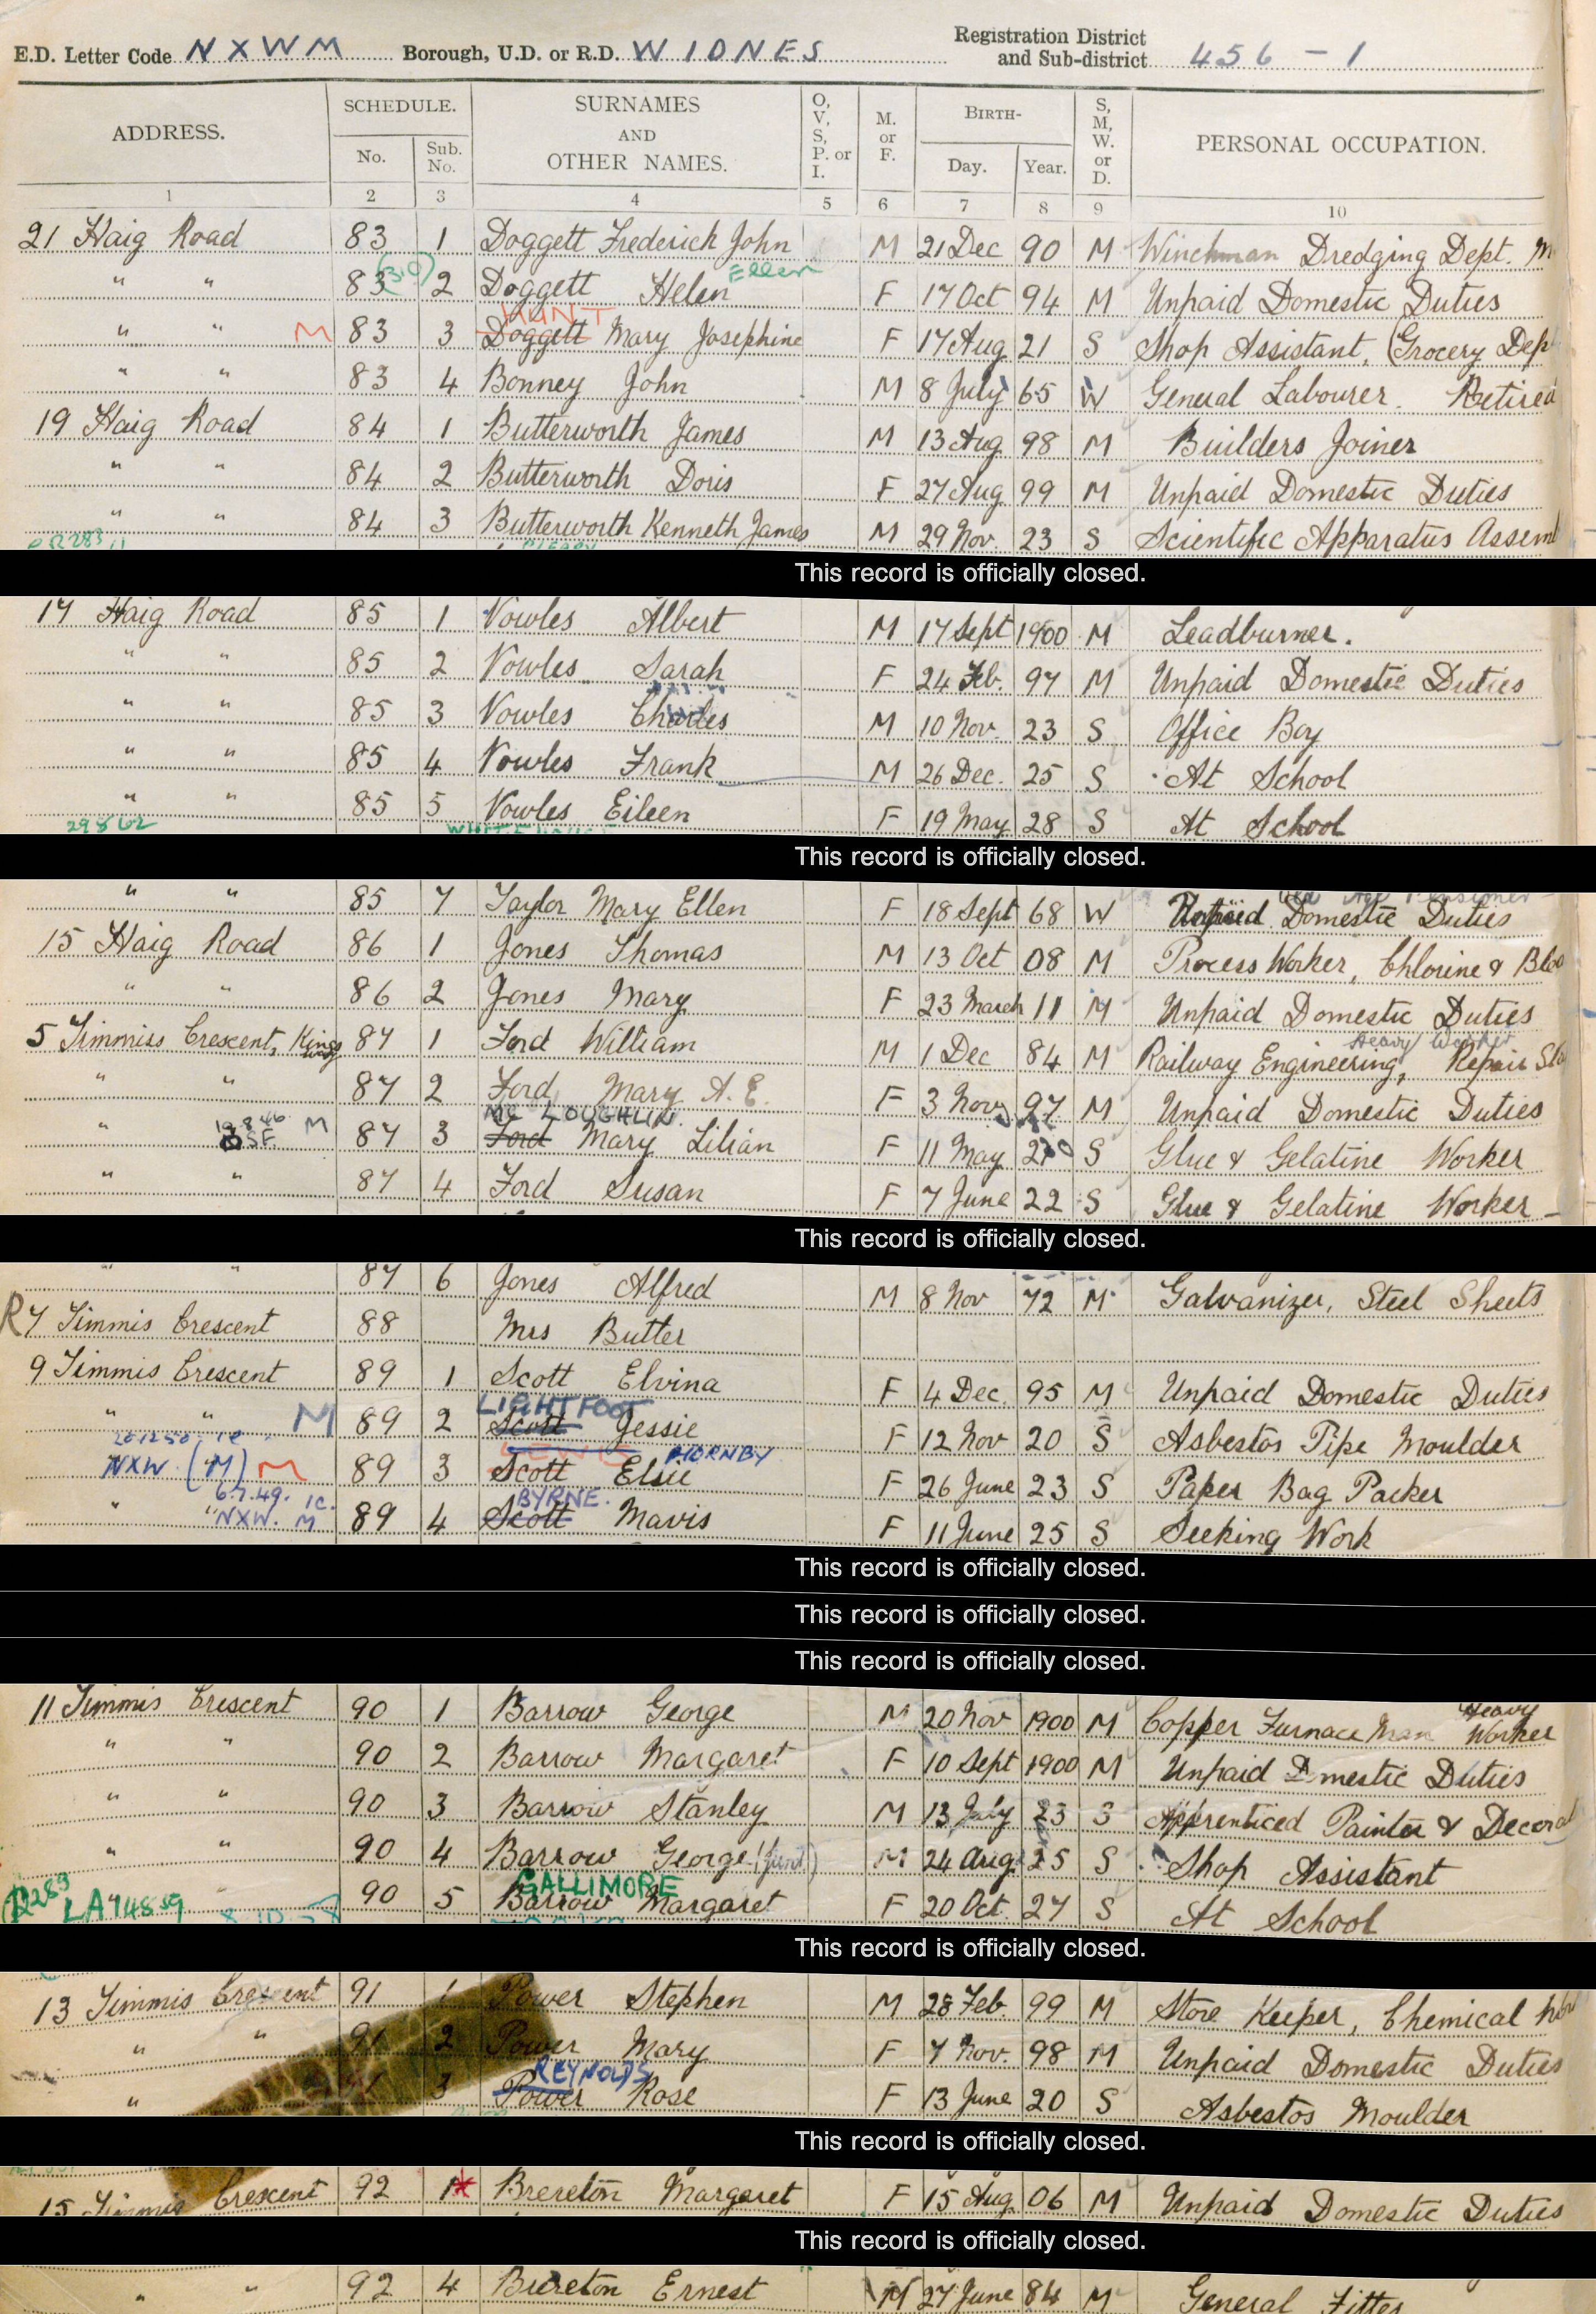 E.D. Letter Code NXWM Borough, U.D. or R.D. WIDNES Registration District and Sub-district 456 - 1
ADDRESS. SCHEDULE. No. Sub. No. SURNAMES AND OTHER NAMES. O, V, S, P. or I. M. or F. BIRTH- Day. Year. S, M, W. or D. PERSONAL OCCUPATION.
1 2 3 4 5 6 7 8 9 10
21 Haig Road 83 1 Doggett Frederick John M 21 Dec 90 M Winchman Dredging Dept. M
Ellen
" " 83 (310) 2 Doggett Helen F 17 Oct 94 M Unpaid Domestic Duties
HUNT
" " M 83 3 Doggett Mary Josephine F 17 Aug 21 S Shop Assistant, (Grocery Dep
" " 83 4 Bonney John M 8 July 65 W General Labourer. Retired
19 Haig Road 84 1 Butterworth James M 13 Aug 98 M Builders Joiner
" " 84 2 Butterworth Doris F 27 Aug 99 M Unpaid Domestic Duties
" " 84 3 Butterworth Kenneth James M 29 Nov. 23 S Scientific Apparatus Assem
This record is officially closed.
17 Haig Road 85 1 Vowles Albert M 17 Sept 1900 M Leadburner.
" " 85 2 Vowles Sarah F 24 Feb. 97 M Unpaid Domestic Duties
" " 85 3 Vowles Charles M 10 Nov. 23 S Office Boy
" " 85 4 Vowles Frank M 26 Dec. 25 S At School
" " 85 5 Vowles Eileen F 19 May 28 S At School
This record is officially closed.
Old Age Pensioner
" " 85 7 Taylor Mary Ellen F 18 Sept 68 W Unpaid Domestic Duties
15 Haig Road 86 1 Jones Thomas M 13 Oct 08 M Process Worker, Chlorine & Blea
" " 86 2 Jones Mary F 23 March 11 M Unpaid Domestic Duties
Heavy Worker
5 Timmiss Crescent, Kingsway 87 1 Ford William M 1 Dec 84 M Railway Engineering, Repair Sho
" " 87 2 Ford Mary A. E. F 3 Nov 97 M Unpaid Domestic Duties
19.8.46 M Mc LOUGHLIN.
" SF. 87 3 Ford Mary Lilian F 11 May 20 S Glue & Gelatine Worker
" " 87 4 Ford Susan F 7 June 22 S Glue & Gelatine Worker
This record is officially closed.
" " 87 6 Jones Alfred M 8 Nov 72 M Galvanizer, Steel Sheets
R 7 Timmis Crescent 88 Mrs Butter
9 Timmis Crescent 89 1 Scott Elvina F 4 Dec. 95 M Unpaid Domestic Duties
LIGHTFOOT
" " M 89 2 Scott Jessie F 12 Nov 20 S Asbestos Pipe Moulder
LEWIS HORNBY
NXW (M) M 89 3 Scott Elsie F 26 June 23 S Paper Bag Packer
6.7.49. IC. BYRNE.
" "NXW. M 89 4 Scott Mavis F 11 June 25 S Seeking Work
This record is officially closed.
This record is officially closed.
This record is officially closed.
Heavy
11 Timmis Crescent 90 1 Barrow George M 20 Nov 1900 M Copper Furnace Man Worker
" " 90 2 Barrow Margaret F 10 Sept 1900 M Unpaid Domestic Duties
" " 90 3 Barrow Stanley M 13 July 23 S Apprenticed Painter & Decorat
" " 90 4 Barrow George (Junr) M 24 Aug. 25 S Shop Assistant
GALLIMORE
R283 LA74859 " 90 5 Barrow Margaret F 20 Oct. 27 S At School
This record is officially closed.
13 Timmis Crescent 91 1 Power Stephen M 28 Feb. 99 M Store Keeper, Chemical Wor
" " 91 2 Power Mary F 7 Nov. 98 M Unpaid Domestic Duties
REYNOLDS
" 91 3 Power Rose F 13 June 20 S Asbestos Moulder
This record is officially closed.
15 Timmis Crescent 92 1* Brereton Margaret F 15 Aug. 06 M Unpaid Domestic Duties
This record is officially closed.
" " 92 4 Brereton Ernest M 27 June 84 M General Fitter